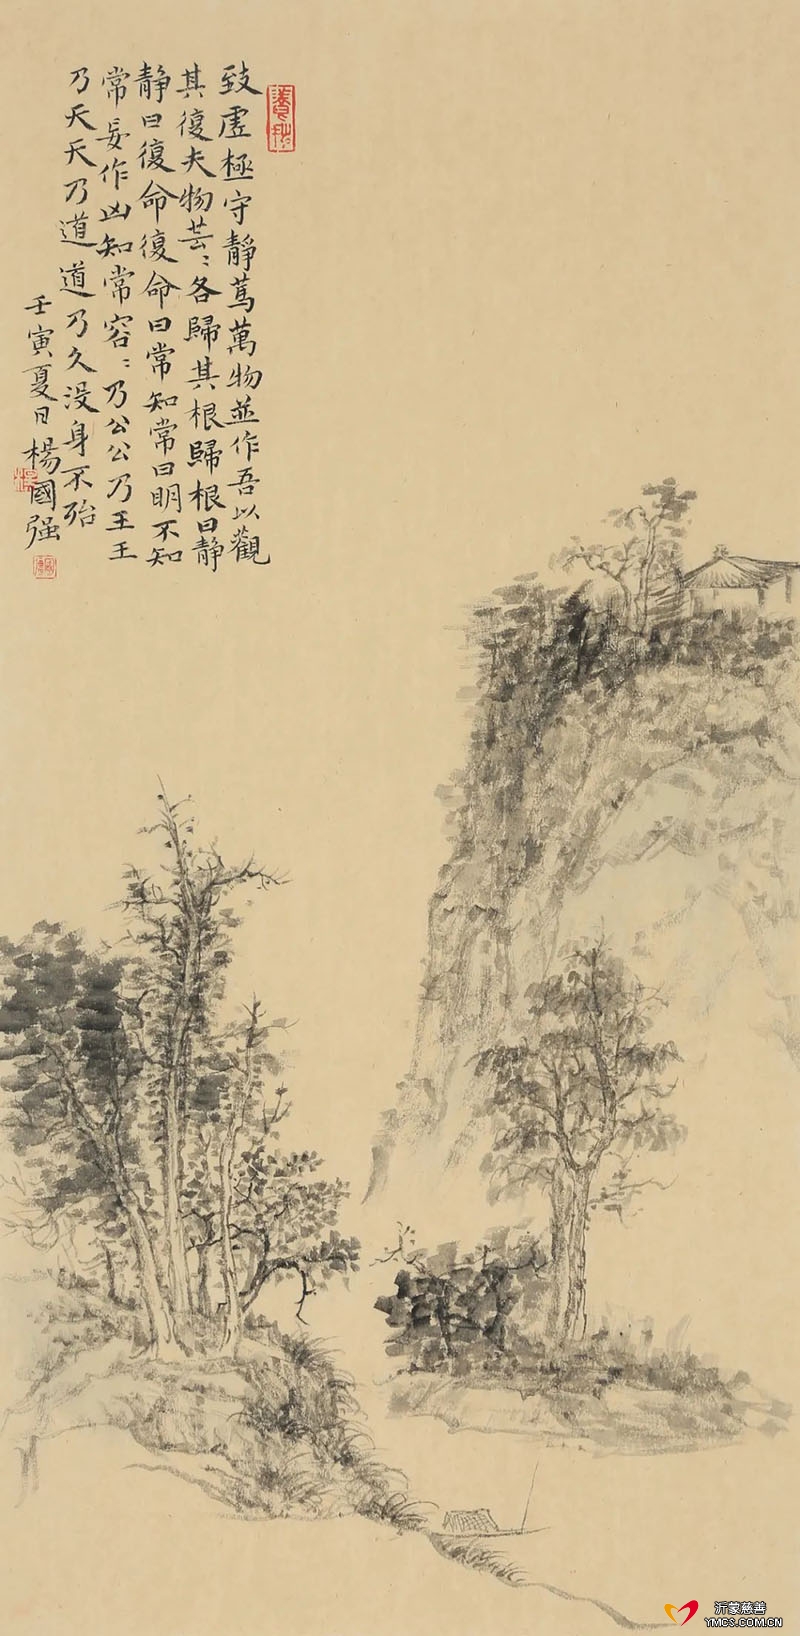 致虛極守靜篤萬物並作吾以觀
其復夫物芸〻各歸其根歸根曰静
静曰復命復命曰常知常曰明不知
常妄作凶知常容〻乃公公乃王王
乃天天乃道道乃久没身不殆
壬寅夏日楊國强
沂蒙慈善
YMCS.COM.CN